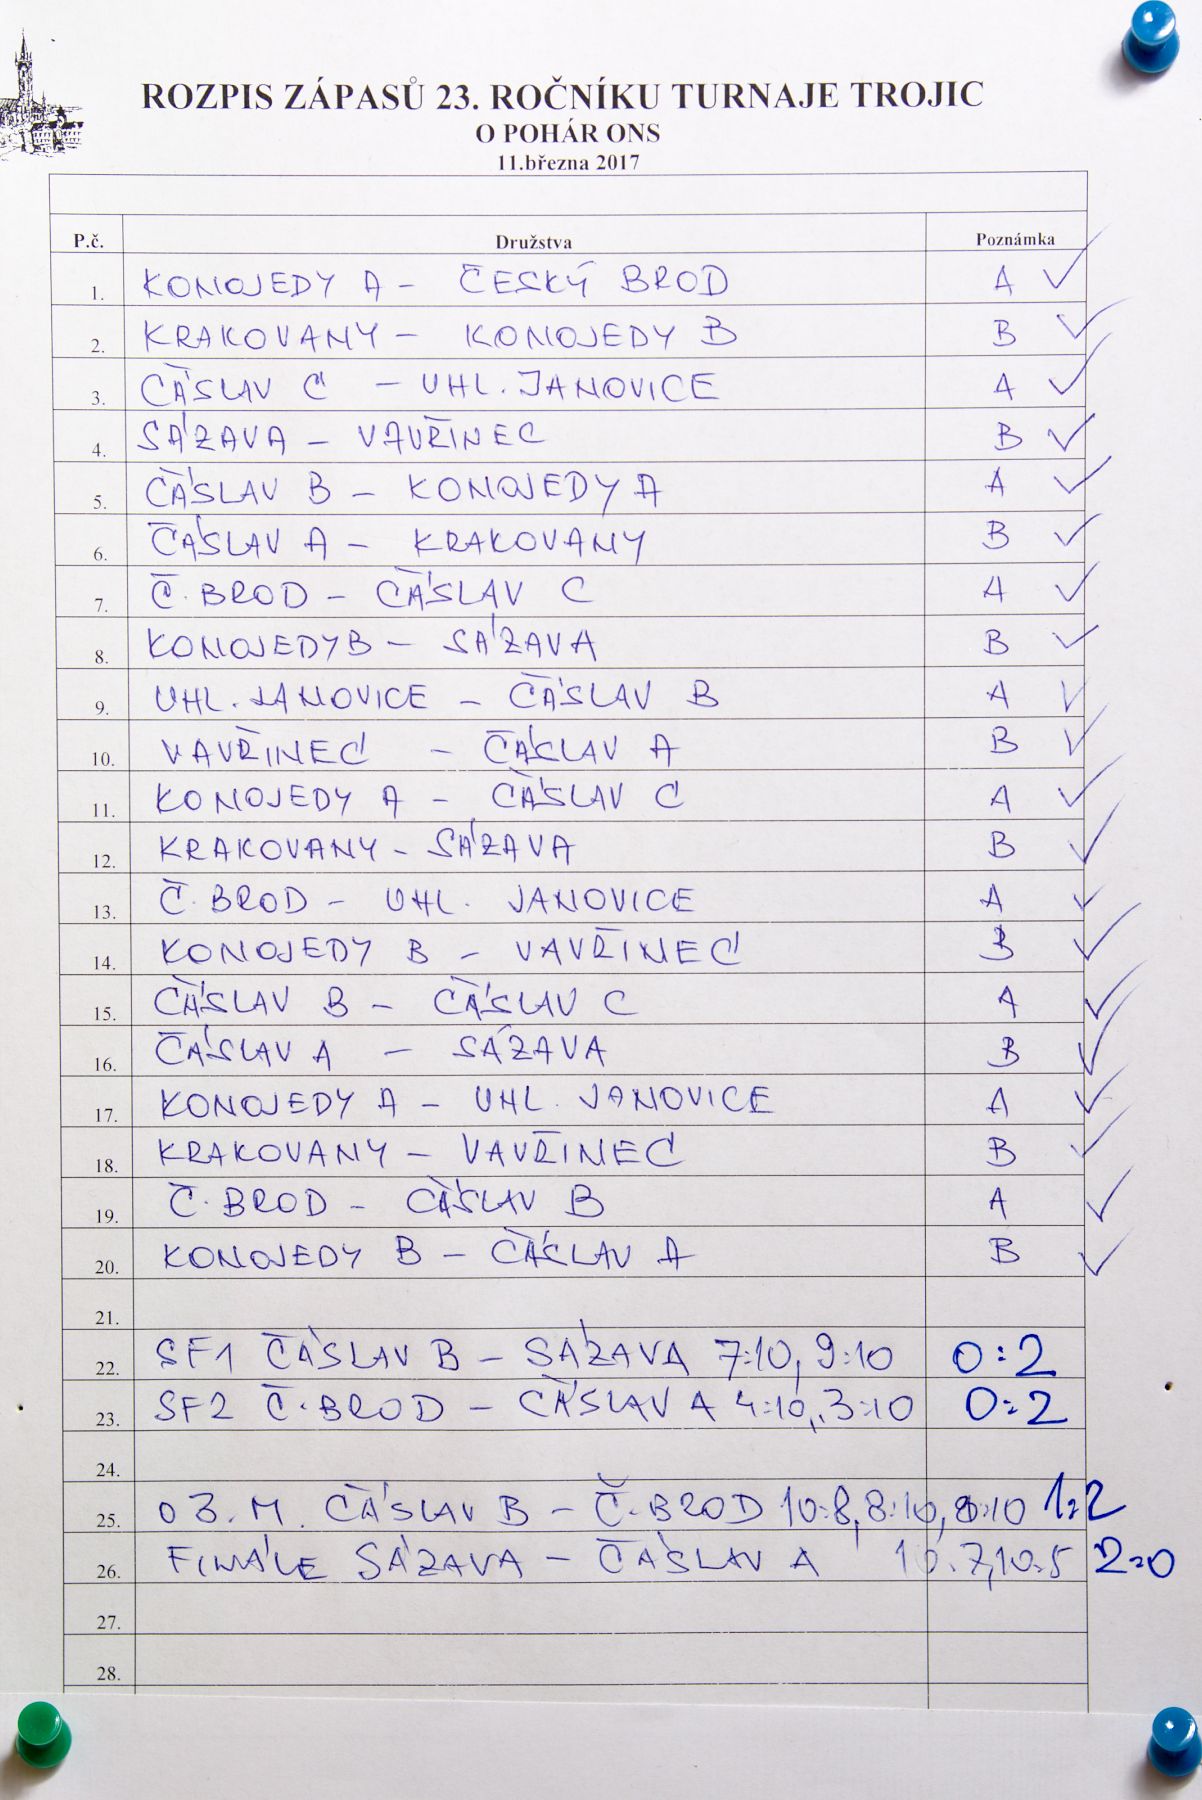 ROZPIS ZÁPASŮ 23. ROČNÍKU TURNAJE TROJIC
O POHÁR ONS
11.března 2017
P.č. Družstva Poznámka
1. KONOJEDY A - ČESKÝ BROD A
2. KRAKOVANY - KONOJEDY B B
3. ČÁSLAV C - UHL. JANOVICE A
4. SÁZAVA - VAVŘINEC B
5. ČÁSLAV B - KONOJEDY A A
6. ČÁSLAV A - KRAKOVANY B
7. Č. BROD - ČÁSLAV C A
8. KONOJEDY B - SÁZAVA B
9. UHL. JANOVICE - ČÁSLAV B A
10. VAVŘINEC - ČÁSLAV A B
11. KONOJEDY A - ČÁSLAV C A
12. KRAKOVANY - SÁZAVA B
13. Č. BROD - UHL. JANOVICE A
14. KONOJEDY B - VAVŘINEC B
15. ČÁSLAV B - ČÁSLAV C A
16. ČÁSLAV A - SÁZAVA B
17. KONOJEDY A - UHL. JANOVICE A
18. KRAKOVANY - VAVŘINEC B
19. Č. BROD - ČÁSLAV B A
20. KONOJEDY B - ČÁSLAV A B
21.
22. SF1 ČÁSLAV B - SÁZAVA 7:10, 9:10 0:2
23. SF2 Č. BROD - ČÁSLAV A 4:10, 3:10 0:2
24.
25. O 3. M. ČÁSLAV B - Č. BROD 10:8, 8:10, 8:10 1:2
26. FINÁLE SÁZAVA - ČÁSLAV A 10:7, 10:5 2:0
27.
28.